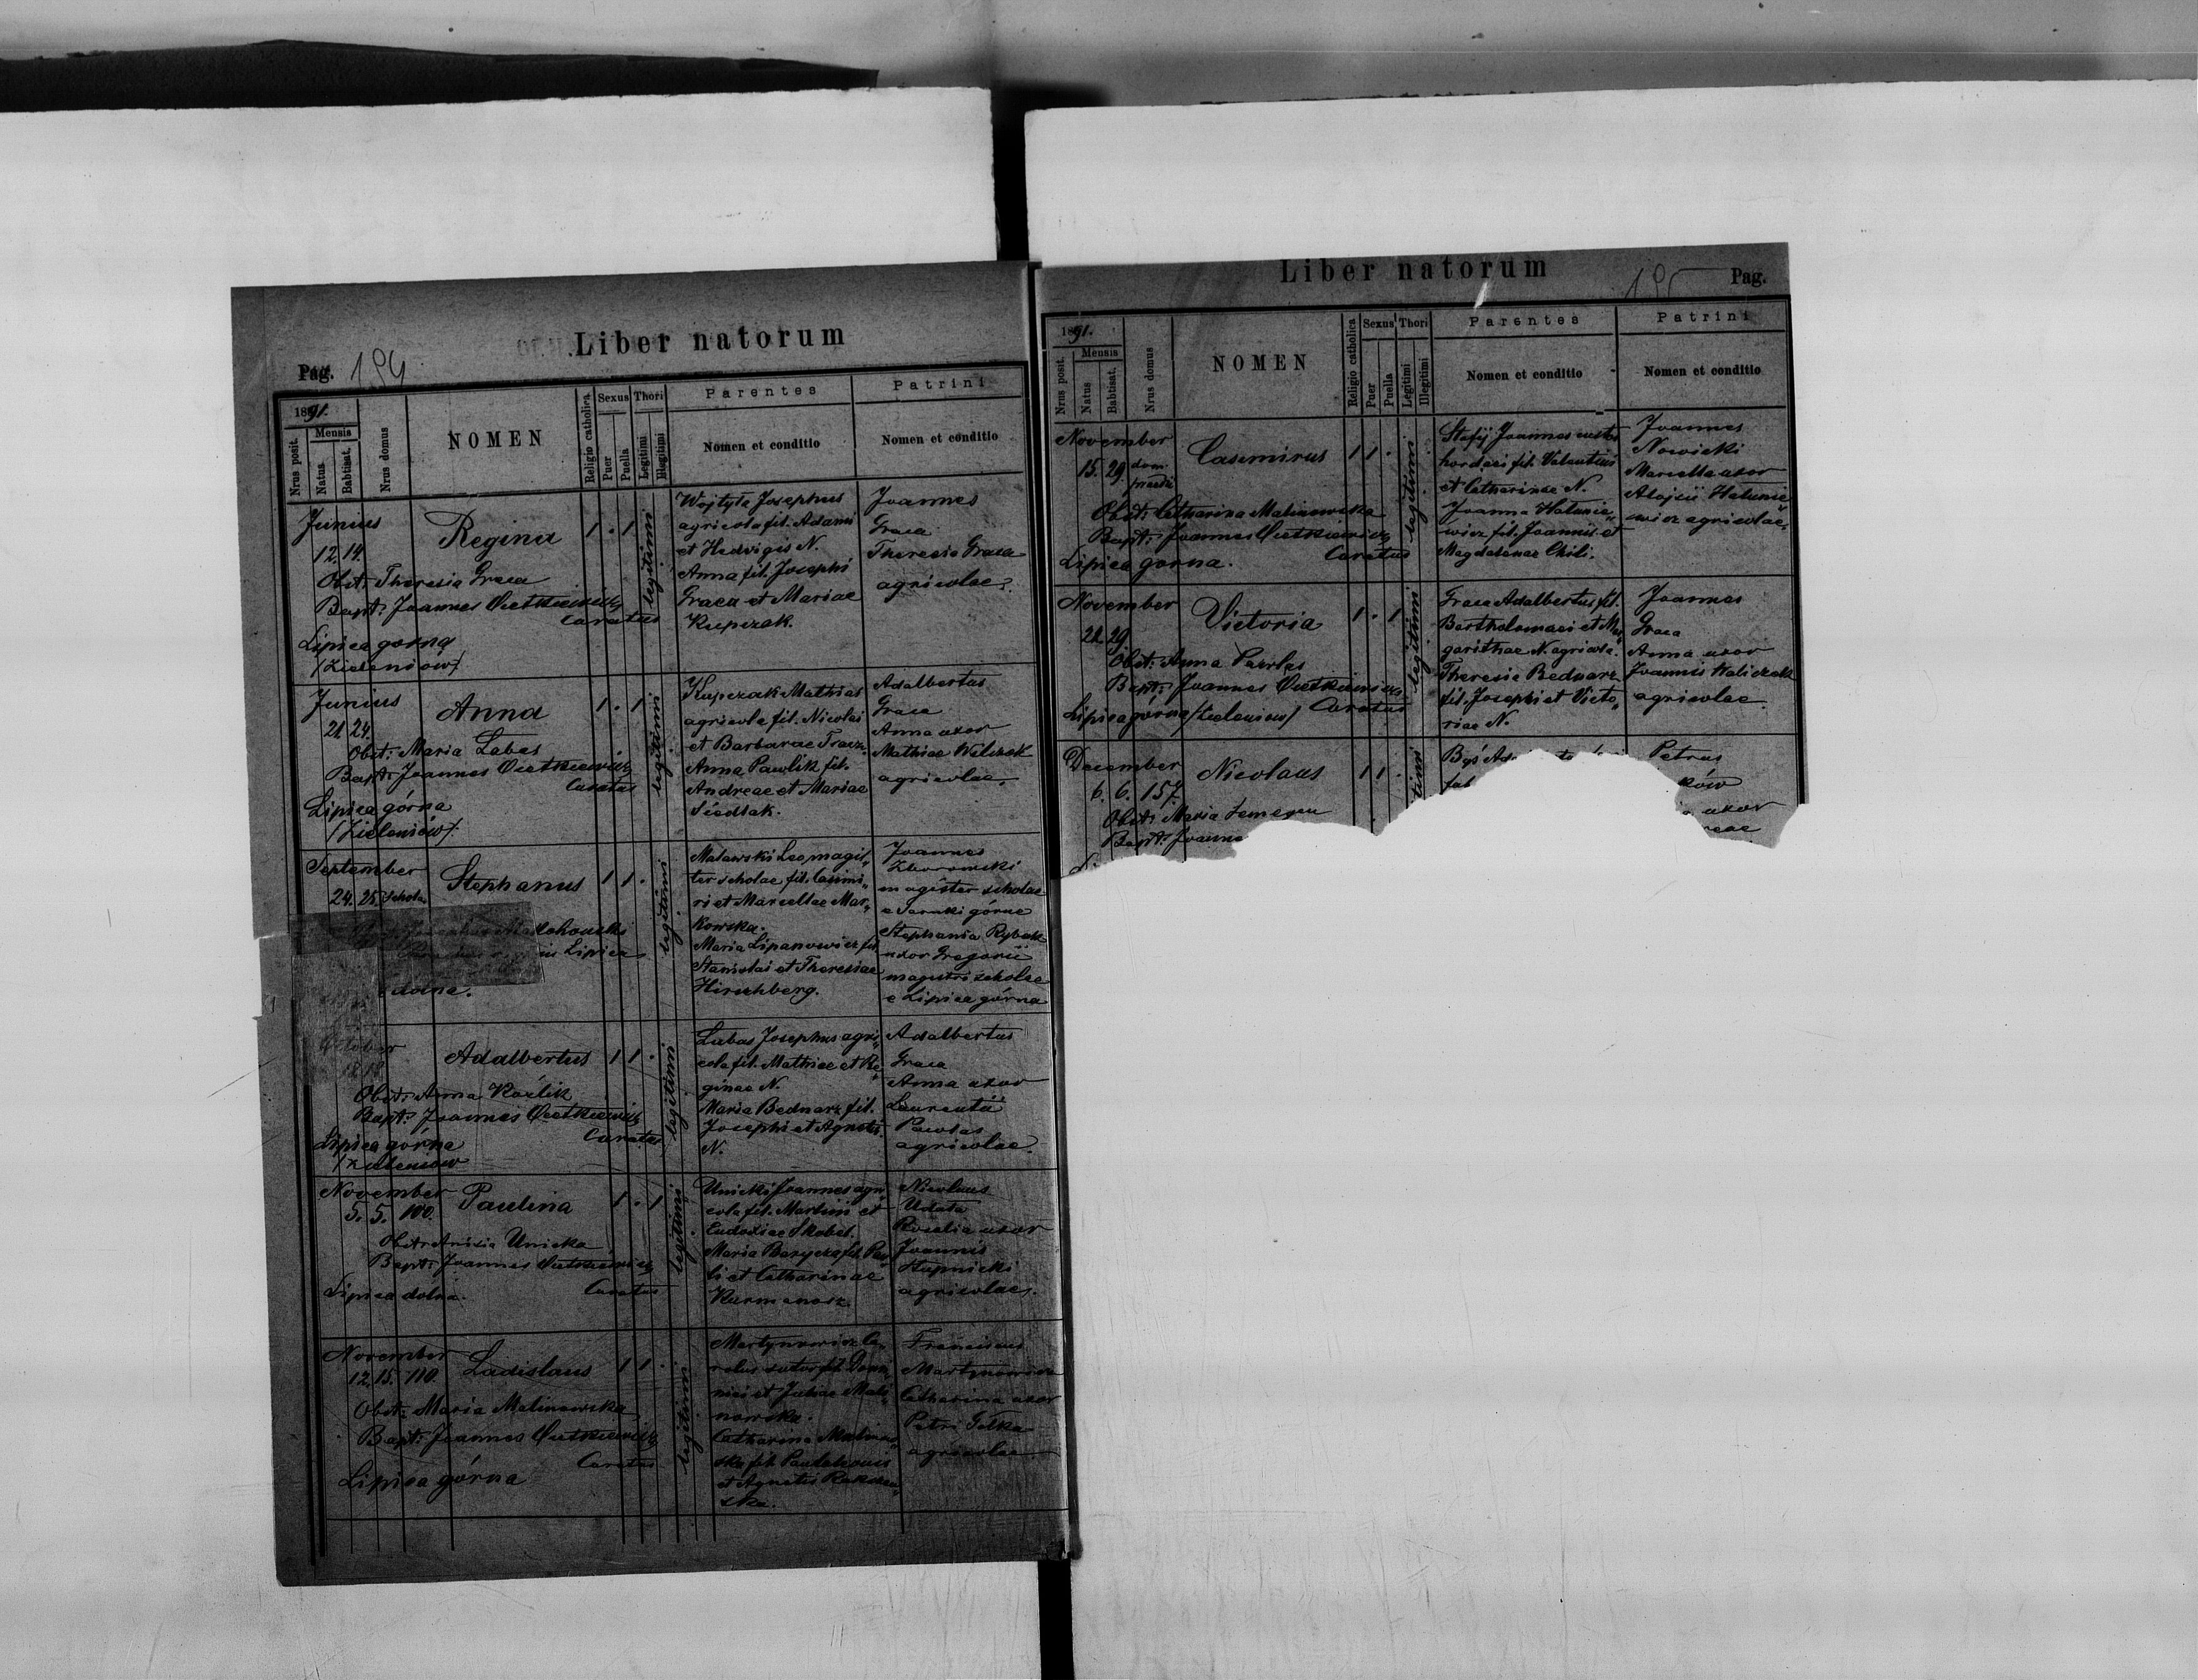 Liber natorum
Pag. 194
1891.
Mensis
Nrus posit.
Natus
Babtisat.
Nrus domus
NOMEN
Religio catholica
Sexus
Puer
Puella
Thori
Legitimi
Illegitimi
Parentes
Nomen et conditio
Patrini
Nomen et conditio
Junius
12. 14.
Regina
1 . 1
legitimi
Obst: Theresia Graca
Bapt: Joannes
Curatus
Lipica górna
/Zieleniów/
Wojtyła Josephus
agricola fil. Adami
et Hedvigis N.
Anna fil. Josephi
Graca et Mariae
Kupczak.
Joannes
Graca
Theresia Graca
agricolae.
Junius
21. 24.
Anna
1 . 1
legitimi
Obst: Maria Labas
Bapt: Joannes
Curatus
Lipica górna
/Zieleniów/
Kupczak Mathias
agricola fil. Nicolai
et Barbarae Tracz.
Anna Pawlik fil.
Andreae et Mariae
Siedlak.
Adalbertus
Graca
Anna uxor
Mathiae Wilczek
agricolae.
September
24. 25. schola
Stephanus
1 1 .
legitimi
in Lipica
dolna.
Malawski Leo magis„
ter scholae, fil. Casimi„
ri et Marcellae Mar„
kowska.
Maria Lipanowicz fil.
Stanislai et Theresiae
Hirschberg.
Joannes
magister scholae
górne
Stephania Rybak
uxor Gregorii
magistri scholae
e Lipica górna
October
Adalbertus
1 1 .
legitimi
Obst: Anna Koźlik
Bapt: Joannes
Curatus
Lipica górna
/Zieleniów
Labas Josephus agri„
cola fil. Mathiae et Re„
ginae N.
Maria Bednarz fil.
Josephi et Agnetis
N.
Adalbertus
Graca
Anna uxor
Laurentii
Pawlas
agricolae.
November
5. 5. 100.
Paulina
1 . 1
legitimi
Obst: Unicka
Bapt: Joannes
Curatus
Lipica dolna.
Unicki Joannes agri„
cola fil. Martini et
Eudoxiae Skobel.
Maria fil. Pau„
li et Catharinae
Nicolaus
Rosalia uxor
Joannis
Stupnicki
agricolae.
November
12. 15. 110.
Ladislaus
1 1 .
legitimi
Obst: Maria Malinowska
Bapt: Joannes
Curatus
Lipica górna
Martynowicz Ca„
rolus sutor fil. Domi„
nici et Juliae Mali„
nowska.
Catharina Malinow„
ska fil.
et Agnetis
ska.
Franciscus
Martynowicz
Catharina uxor
Petri Gałka
agricolae
Liber natorum
195
Pag.
1891.
Mensis
Nrus posit.
Natus
Babtisat.
Nrus domus
NOMEN
Religio catholica
Sexus
Puer
Puella
Thori
Legitimi
Illegitimi
Parentes
Nomen et conditio
Patrini
Nomen et conditio
November
15. 29. dom.
Casimirus
1 1 .
legitimi
Obst: Catharina Malinowska
Bapt: Joannes
Curatus
Lipica gorna.
Joannes
fil. Valentini
et Catharinae N.
Joanna Halunie„
wicz fil. Joannis et
Magdalenae
Joannes
Nowicki
Marcella uxor
Alojsii Halunie„
wicz agricolae.
November
21. 29.
Victoria
1 . 1
legitimi
Obst: Anna Pawlas
Bapt: Joannes
Curatus
Lipica górna /Zieleniów/
Graca Adalbertus fil.
Bartholomaei et Mar„
garithae N. agricola.
Theresia Bednarz
fil. Josephi et Victo„
riae N.
Joannes
Graca
Anna uxor
Joannis
agricolae.
December
6. 6. 157.
Nicolaus
1 1 .
Obst: Maria
Bapt:
Petrus
uxor